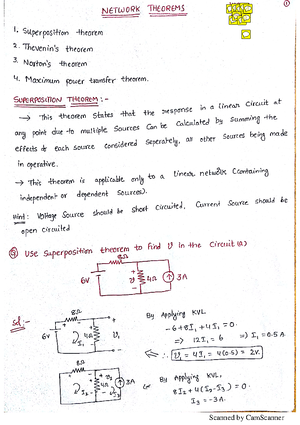 NETWORK THEOREMS
1. Superposition theorem
2. Thevenin's theorem
3. Norton's theorem
4. Maximum power transfer theorem.
SUPERPOSITION THEOREM:-
→ This theorem states that the response in a linear circuit at
any point due to multiple sources can be calculated by summing the
effects of each source considered seperately, all other sources being made
in operative.
→ This theorem is applicable only to a linear network (containing
independent or dependent sources).
Hint:- Voltage source should be short circuited, current source should be
open circuited
Use superposition theorem to find v in the circuit (a)
8Ω
6V
v
4Ω
3A
Sol:-
8Ω
6V
I₁
4Ω
v₁
By Applying KVL
-6+8I₁+4I₁=0.
⇒ 12I₁=6 ⇒ I₁=0.5A
∴ v₁=4I₁=4(0.5)=2V.
8Ω
4Ω
3A
I₂
I₃
By Applying KVL,
8I₂+4(I₂-I₃)=0.
I₃=-3A.
Scanned by CamScanner